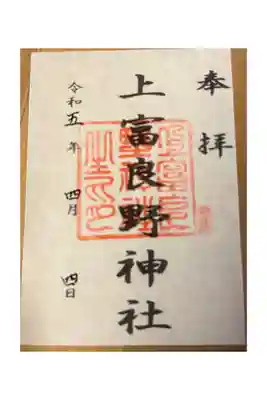 奉拝
上富良野神社
令和五年四月四日